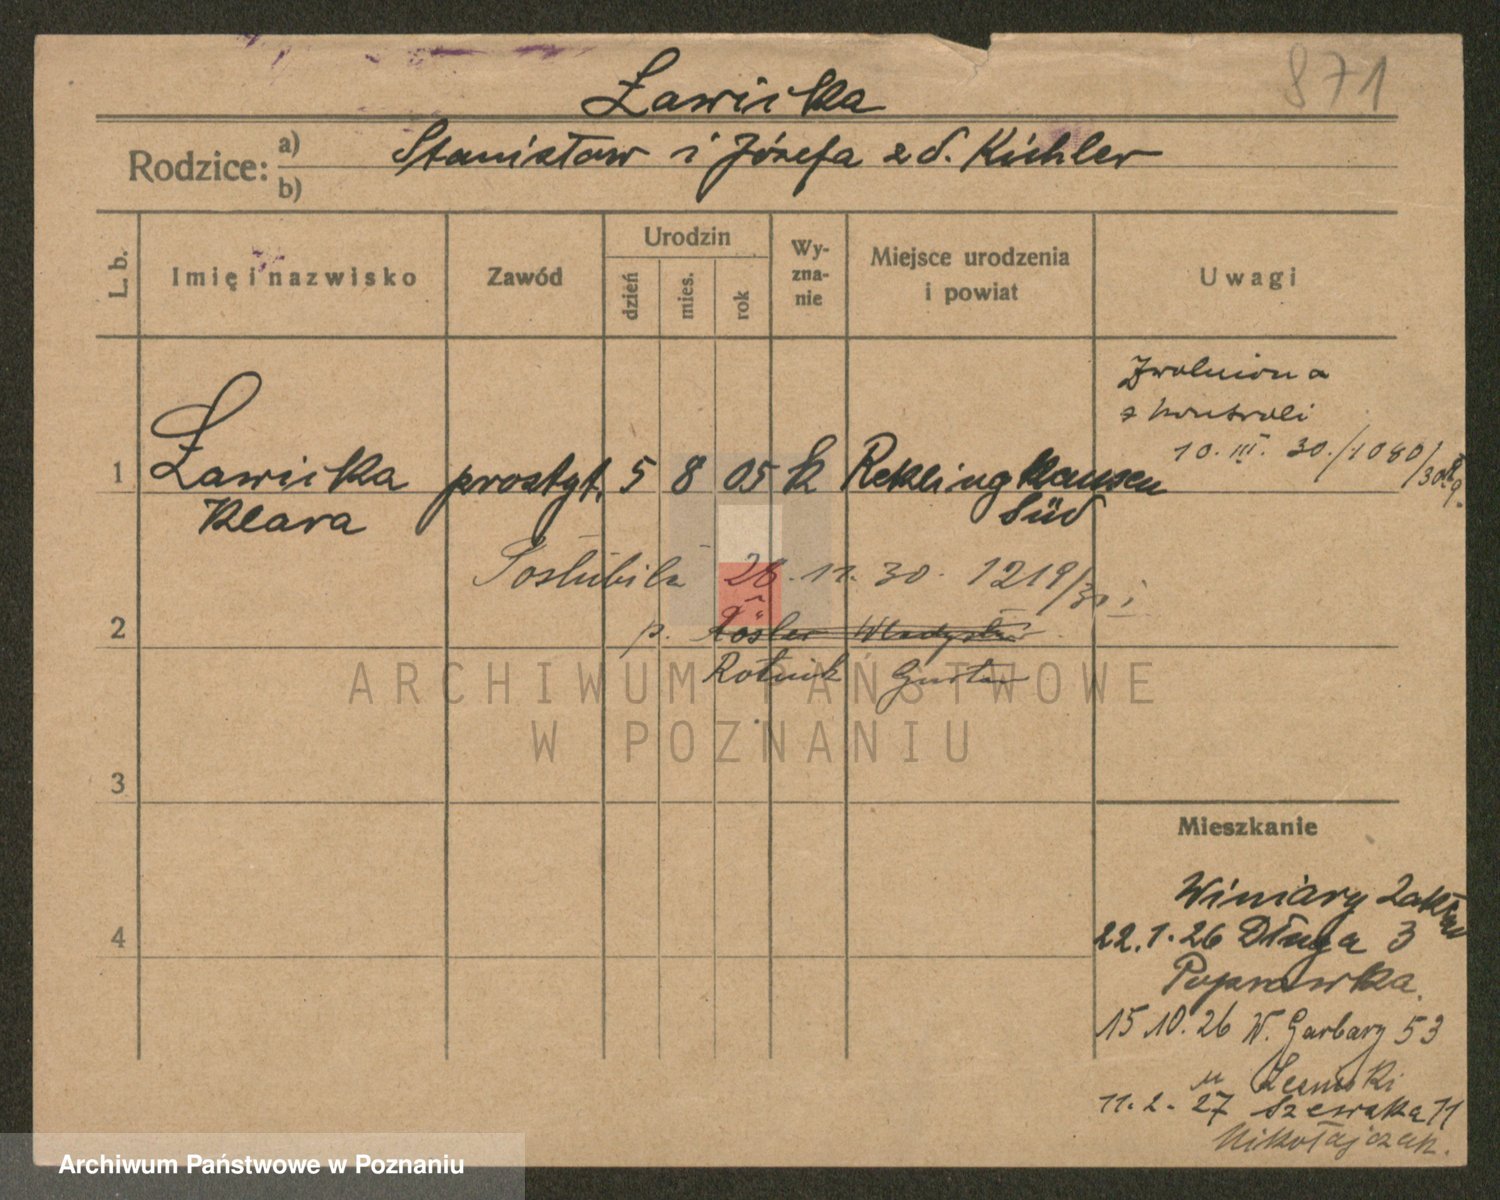 871
Ławicka
Rodzice: a) b)
Stanisław i Józefa z d. Kichler
L. b.
Imię i nazwisko
Zawód
Urodzin
dzień
mies.
rok
Wy-
zna-
nie
Miejsce urodzenia
i powiat
Uwagi
Zwolniona
z kontroli
10. III. 30./1080/30
1 Ławicka prostyt. 5 8 05 k Reklinghausen
Klara Süd
Poślubiła 28.11.30. 1219/30 i
2 p. Rösler Władysław
Rotnik Gustav
ARCHIWUM PAŃSTWOWE
W POZNANIU
3
Mieszkanie
4
Winiary Zakład
22.1.26 Długa 3
Poprawka.
15 10.26 W. Garbary 53
u
11.2.27 Szewska 11
Mikołajczak.
Archiwum Państwowe w Poznaniu